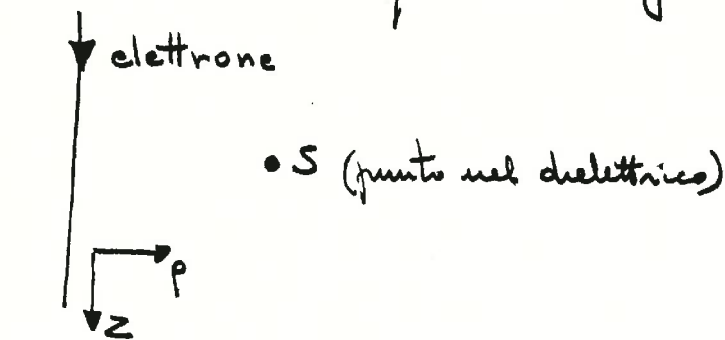 elettrone
• S (punto nel dielettrico)
ρ
Z